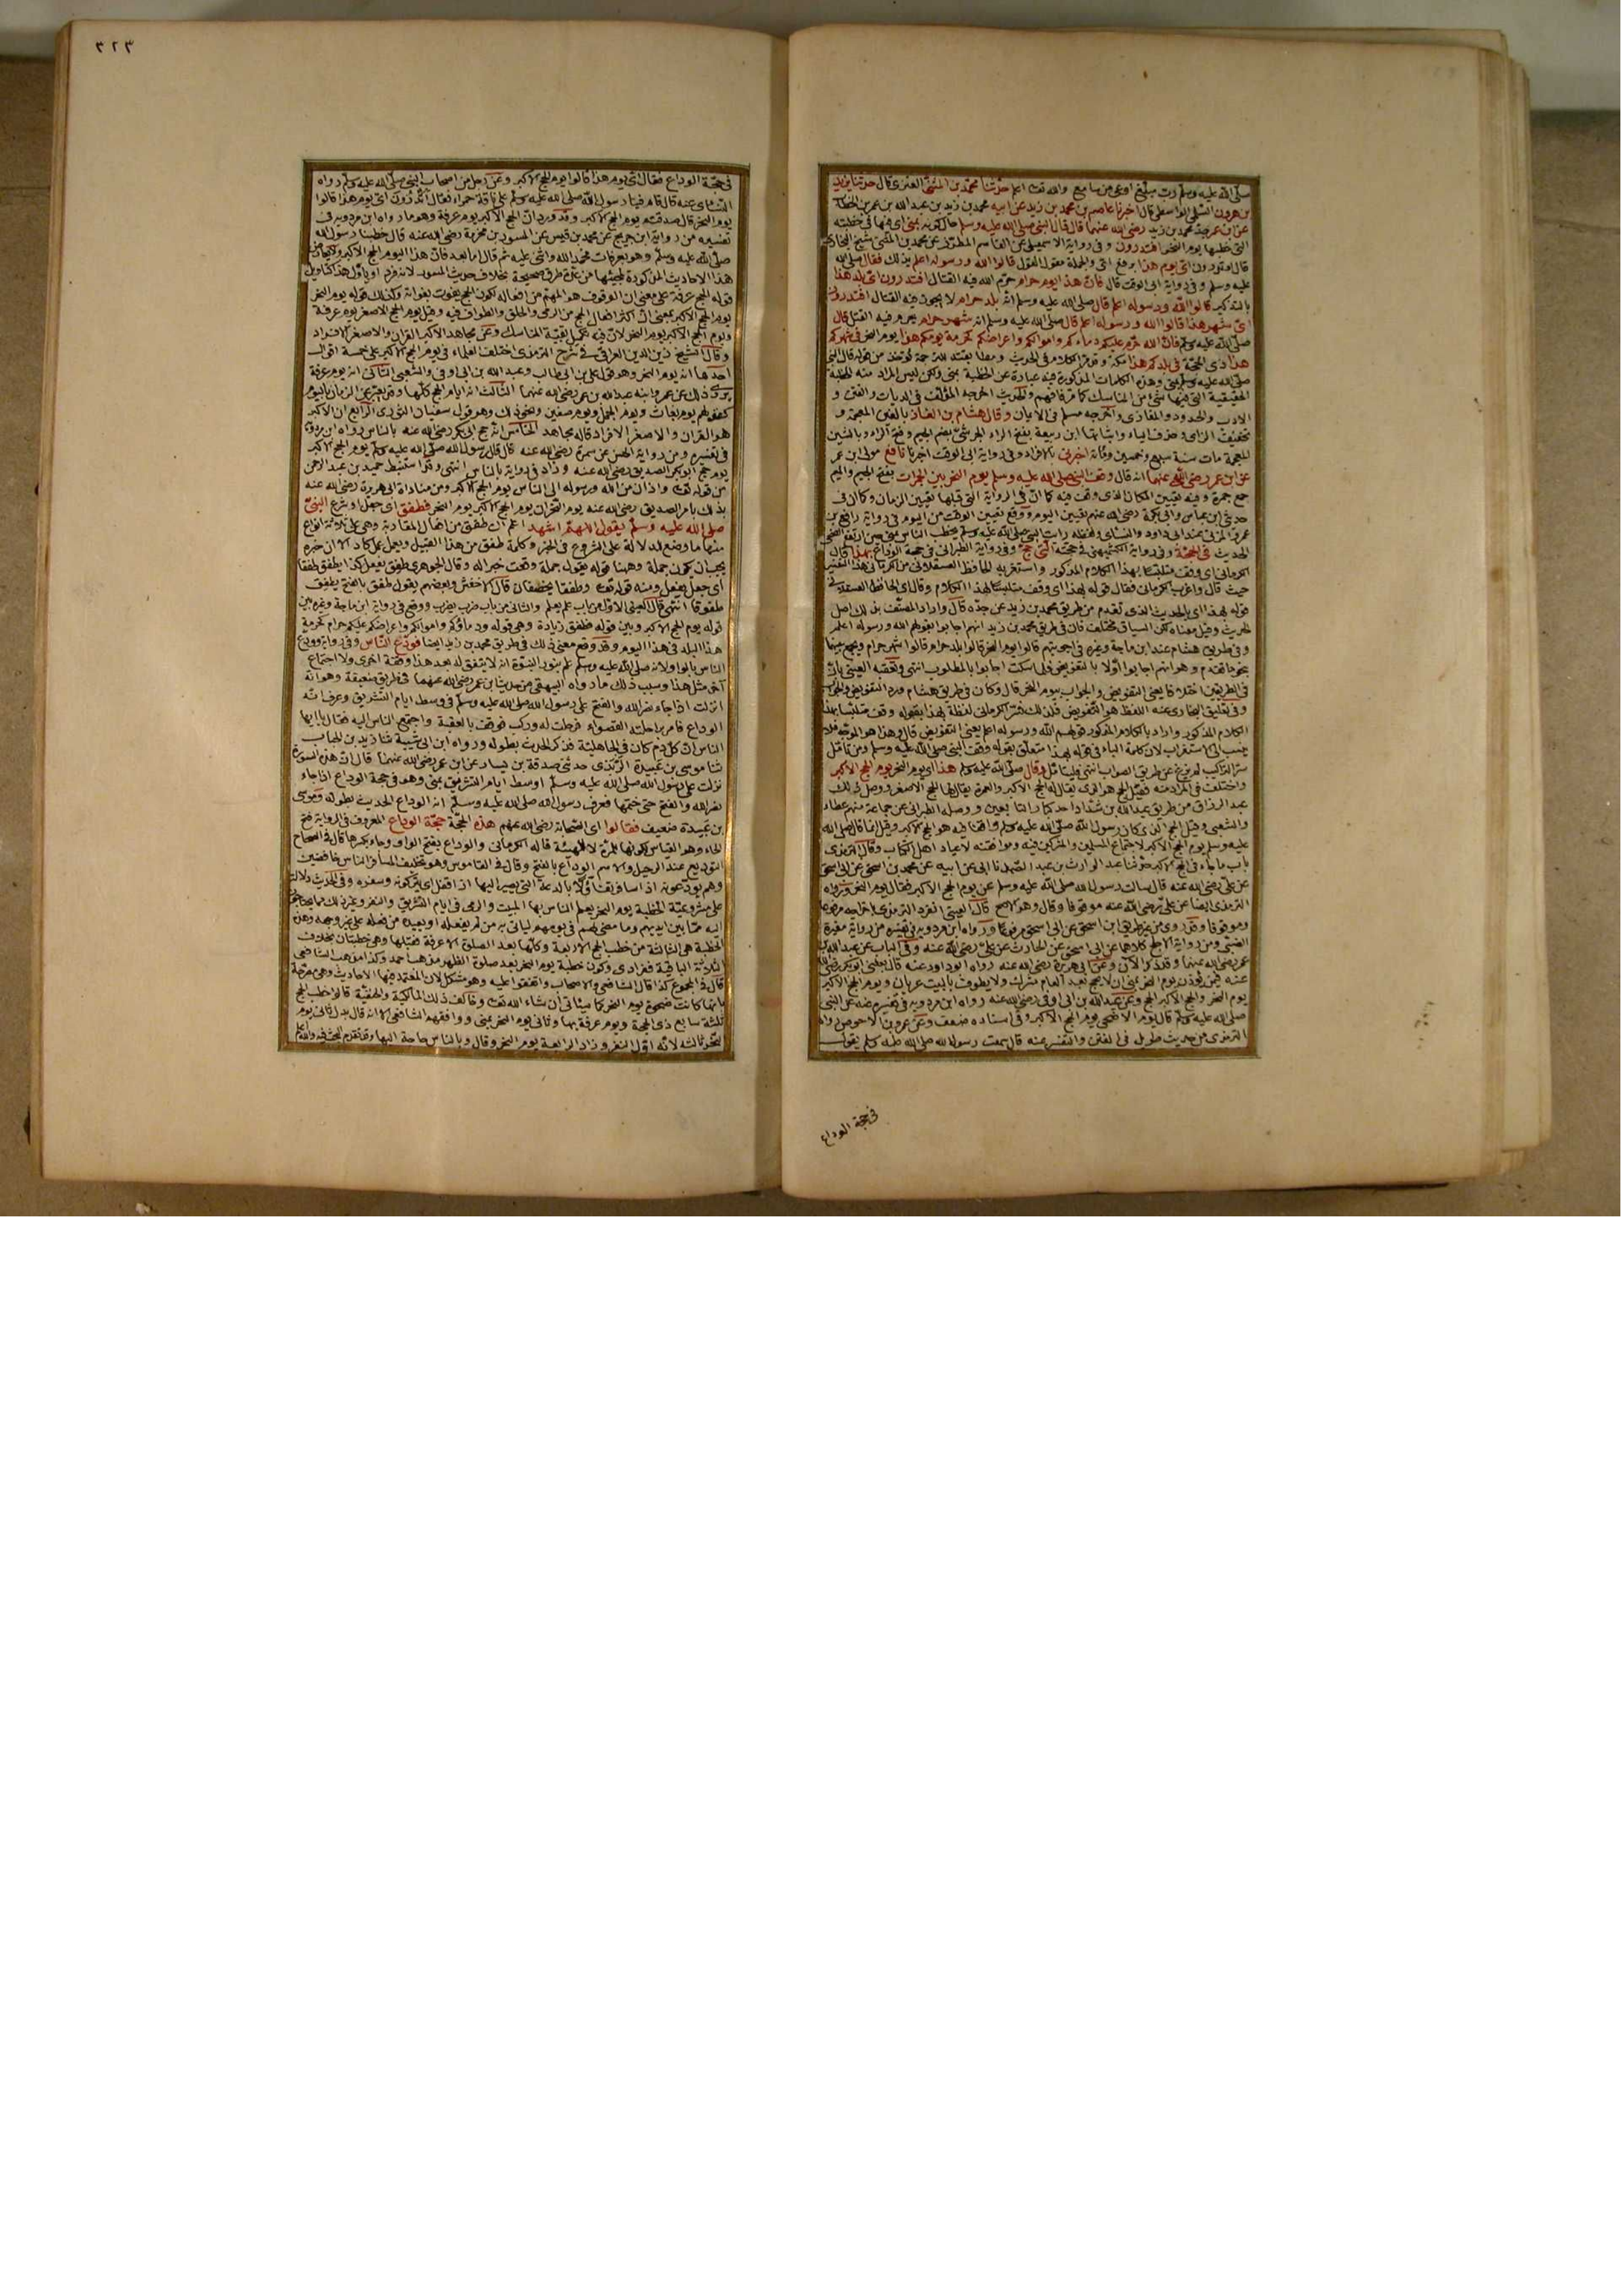 صلى الله عليه وسلم رب مبلغ اوعى من سامع والله تعالى اعلم حدثنا محمد بن المثنى العنزى قال حدثنا يزيد
بن هرون السلمى الواسطى قال اخبرنا عاصم بن محمد بن زيد عن ابيه محمد بن زيد بن عبد الله بن عمر بن الخطاب
عن ابن عمر جد محمد بن زيد رضى الله عنهما قال قال النبى صلى الله عليه وسلم حال كونه بمنى اى فيها فى خطبته
التى خطبها يوم النحر افتدرون وفى رواية الاسمعيلى عن القاسم المطرز عن محمد بن المثنى شيخ البخارى
قال اوتدرون اى يوم هذا برفع اى والجملة مقول القول قالوا الله ورسوله اعلم بذلك فقال صلى الله
عليه وسلم وفى رواية ابى الوقت قال فان هذا يوم حرام حرم الله فيه القتال افتدرون اى بلد هذا
بالتذكير قالوا الله ورسوله اعلم قال صلى الله عليه وسلم انه بلد حرام لا يجوز فيه القتال افتدرون
اى شهر هذا قالوا الله ورسوله اعلم قال صلى الله عليه وسلم انه شهر حرام يحرم فيه القتل قال
صلى الله عليه وسلم فان الله حرم عليكم دماءكم واموالكم واعراضكم كحرمة يومكم هذا يوم النحر فى شهركم
هذا ذى الحجة فى بلدكم هذا مكة
صلى الله عليه وسلم بمنى وهذه الكلمات المذكورة فيه عبارة عن الخطبة بمنى ولكن ليس المراد منه الخطبة
الحقيقية التى فيها شئ من المناسك والحديث اخرجه المؤلف فى الديات والفتن و
الادب والحدود والمغازى واخرجه مسلم فى الايمان وقال هشام بن الغاز بالغين المعجمة و
تخفيف الزاى وحذف الياء واثباتها ابن ربيعة بفتح الراء الجرشى بضم الجيم وفتح الراء وبالشين
المعجمة مات سنة سبع وخمسين ومائة اخبرنى بالافراد وفى رواية ابى الوقت اخبرنا نافع مولى ابن عمر
عن ابن عمر رضى الله عنهما انه قال وقف النبى صلى الله عليه وسلم يوم النحر بين الجمرات بفتح الجيم والميم
جمع جمرة وفيه تعيين المكان الذى وقف فيه كما ان فى الرواية التى قبلها تعيين الزمان وكما ان فى
حديثى ابن عباس وابى بكرة رضى الله عنهم تعيين اليوم ووقع تعيين الوقت من اليوم فى رواية رافع بن
عمرو المزنى عند ابى داود والنسائى ولفظه رايت النبى صلى الله عليه وسلم يخطب الناس بمنى حين ارتفع الضحى
الحديث فى الحجة وفى رواية الكشميهنى فى حجته التى حج وفى رواية الطبرانى فى حجة الوداع بهذا قال
الكرمانى اى وقف متلبسا بهذا الكلام المذكور واستغربه الحافظ العسقلانى من الكرمانى هذا التفسير
حيث قال واغرب الكرمانى فقال قوله بهذا اى وقف متلبسا بهذا الكلام وقال اى الحافظ العسقلانى
قوله بهذا اى بالحديث الذى تقدم من طريق محمد بن زيد عن جده قال واراد المصنف بذلك اصل
الحديث وقيل معناه لكن السياق مختلف فان فى طريق محمد بن زيد انهم اجابوا بقولهم الله ورسوله اعلم
وفى طريق هشام عند ابن ماجة وغيره فى اجوبتهم قالوا يوم النحر قالوا بلد حرام قالوا شهر حرام ويجمع بينهما
بنحو ما تقدم وهو انهم اجابوا اولا بالتفويض فلما سكت اجابوا بالمطلوب انتهى وتعقبه العينى بان
فى الطريقين اختلافا يعنى التفويض والجواب بيوم النحر قال وكان فى طريق هشام ورد التفويض والجواب
وفى تعليق البخارى عنه اللفظ هو التفويض فلذلك فسر الكرمانى لفظة بهذا بقوله وقف متلبسا بهذا
الكلام المذكور واراد بالكلام المذكور قولهم الله ورسوله اعلم يعنى التفويض قال وهذا هو الموجه فلا
ينسب الى الاستغراب لان كلمة الباء فى قوله بهذا متعلق بقوله وقف النبى صلى الله عليه وسلم ومن تامل
سر التركيب لم يزغ عن طريق الصواب انتهى فليتامل وقال صلى الله عليه وسلم هذا اى يوم النحر يوم الحج الاكبر
واختلف فى المراد منه فقيل الحج هو الذى يقال له الحج الاكبر والعمرة يقال لها الحج الاصغر ووصل ذلك
عبد الرزاق من طريق عبد الله بن شداد احد كبار التابعين ووصله الطبرانى عن جماعة منهم عطاء
والشعبى وقيل الحج الذى كان رسول الله صلى الله عليه وسلم واقفا فيه هو الحج الاكبر وقيل انما قال صلى الله
عليه وسلم يوم الحج الاكبر لاجتماع المسلمين والمشركين فيه وموافقته لاعياد اهل الكتاب وقال الترمذى
باب ما جاء فى الحج الاكبر حدثنا عبد الوارث بن عبد الصمد نا ابى عن ابيه عن محمد بن اسحق عن ابى اسحق
عن على رضى الله عنه قال سالت رسول الله صلى الله عليه وسلم عن يوم الحج الاكبر فقال يوم النحر ورواه
الترمذى ايضا عن على رضى الله عنه موقوفا وقال وهو الاصح قال العينى انفرد الترمذى باخراجه مرفوعا
وموقوفا وقد روى من غير طريق ابن اسحق عن ابى اسحق مرفوعا ورواه ابن مردويه فى تفسيره من رواية مغيرة
الضبى ومن رواية الاجلح كلاهما عن ابى اسحق عن الحارث عن على رضى الله عنه وفى الباب عن عبد الله بن
عمر رضى الله عنهما وقد ذكر الآن وعن ابى هريرة رضى الله عنه رواه ابو داود عنه قال بعثنى ابو بكر رضى الله
عنه فيمن يؤذن يوم النحر بمنى ان لا يحج بعد العام مشرك ولا يطوف بالبيت عريان ويوم الحج الاكبر
يوم النحر والحج الاكبر الحج وعن عبد الله بن ابى اوفى رضى الله عنه رواه ابن مردويه فى تفسيره عنه عن النبى
صلى الله عليه وسلم قال يوم الاضحى يوم الحج الاكبر وفى اسناده ضعف وعن عمرو بن الاحوص رواه
الترمذى من حديث طويل فى الفتن والتفسير عنه قال سمعت رسول الله صلى الله عليه وسلم يقول
فى حجة الوداع
٣٢٣
فى حجة الوداع فقال اى يوم هذا قالوا يوم الحج الاكبر وعن رجل من اصحاب النبى صلى الله عليه وسلم رواه
النسائى عنه قال قام فينا رسول الله صلى الله عليه وسلم على ناقة حمراء فقال اتدرون اى يوم هذا قالوا
يوم النحر قال صدقتم يوم الحج الاكبر وقد ورد ان الحج الاكبر يوم عرفة وهو ما رواه ابن مردويه فى
تفسيره من رواية ابن جريج عن محمد بن قيس عن المسور بن مخرمة رضى الله عنه قال خطبنا رسول الله
صلى الله عليه وسلم وهو بعرفات فحمد الله واثنى عليه ثم قال اما بعد فان هذا اليوم الحج الاكبر
هذا الاحاديث المذكورة لمجيئها من عدة طرق صحيحة بخلاف حديث المسور لانه فرد او ياول هذا كتاويل
قوله الحج عرفة على معنى ان الوقوف هو المهم من افعاله لكون الحج يفوت بفواته وكذلك قوله يوم النحر
يوم الحج الاكبر بمعنى ان اكثر افعال الحج من الرمى والحلق والطواف فيه وقيل يوم الحج الاصغر يوم عرفة
ويوم الحج الاكبر يوم النحر لان فيه تكمل بقية المناسك وعن مجاهد الاكبر القران والاصغر الافراد
وقال الشيخ زين الدين العراقى فى شرح الترمذى اختلف العلماء فى يوم الحج الاكبر على خمسة اقوال
احدها انه يوم النحر وهو قول على بن ابى طالب وعبد الله بن ابى اوفى والشعبى الثانى انه يوم عرفة
يروى ذلك عن عمر وابنه عبد الله بن عمر رضى الله عنهما الثالث انه ايام الحج كلها وقد يعبر عن الزمان باليوم
كقولهم يوم بعاث ويوم الجمل ويوم صفين ونحو ذلك وهو قول سفيان الثورى الرابع ان الاكبر
هو القران والاصغر الافراد قاله مجاهد الخامس انه حج ابى بكر رضى الله عنه بالناس رواه ابن مردويه
فى تفسيره من رواية الحسن عن سمرة رضى الله عنه قال قال رسول الله صلى الله عليه وسلم يوم الحج الاكبر
يوم حج ابو بكر الصديق رضى الله عنه وزاد فى رواية بالناس انتهى وقد استنبط حميد بن عبد الرحمن
من قوله تعالى واذان من الله ورسوله الى الناس يوم الحج الاكبر ومن مناداة ابى هريرة رضى الله عنه
بذلك بامر الصديق رضى الله عنه يوم النحر ان يوم الحج الاكبر يوم النحر فطفق اى جعل او شرع النبى
صلى الله عليه وسلم يقول اللهم اشهد اعلم ان طفق من افعال المقاربة وهى على ثلاثة انواع
منها ما وضع للدلالة على الشروع فى الخبر وكلمة طفق من هذا القبيل ويعمل عمل كاد الا ان خبره
يجب ان يكون جملة وههنا قوله يقول جملة وقعت خبرا له وقال الجوهرى طفق يفعل كذا يطفق طفقا
اى جعل يفعل ومنه قوله تعالى وطفقا يخصفان قال الاخفش وبعضهم يقول طفق بالفتح يطفق
طفوقا انتهى قال العينى الاول من باب علم يعلم والثانى من باب ضرب يضرب ووقع فى رواية ابن ماجة وغيره بين
قوله يوم الحج الاكبر وبين قوله فطفق زيادة وهى قوله ودماؤكم واموالكم واعراضكم عليكم حرام كحرمة
هذا البلد فى هذا اليوم وقد وقع معنى ذلك فى طريق محمد بن زيد ايضا فودع الناس وفى رواية وودع
الناس بالواو لانه صلى الله عليه وسلم علم بنور النبوة انه لا يتفق له بعد هذا وقفة اخرى ولا اجتماع
آخر مثل هذا وسبب ذلك ما رواه البيهقى من حديث ابن عمر رضى الله عنهما فى طريق ضعيفة وهو انه
انزلت اذا جاء نصر الله والفتح على رسول الله صلى الله عليه وسلم فى وسط ايام التشريق وعرف انه
الوداع فامر براحلته القصواء فرحلت له وركب فوقف بالعقبة واجتمع الناس اليه فقال يا ايها
الناس ان كل دم كان فى الجاهلية فذكر الحديث بطوله ورواه ابن ابى شيبة ثنا زيد بن الحباب
ثنا موسى بن عبيدة الربذى حدثنى صدقة بن يسار عن ابن عمر رضى الله عنهما قال ان هذه السورة
نزلت على رسول الله صلى الله عليه وسلم اوسط ايام التشريق بمنى وهو فى حجة الوداع اذا جاء
نصر الله والفتح حتى ختمها فعرف رسول الله صلى الله عليه وسلم انه الوداع الحديث بطوله وموسى
بن عبيدة ضعيف فقالوا اى الصحابة رضى الله عنهم هذه الحجة حجة الوداع المعروف فى الرواية فتح
الحاء وهو القياس لكونها للمرة لا للهيئة قاله الكرمانى والوداع بفتح الواو وجاء بكسرها قال فى الصحاح
التوديع عند الرحيل والاسم الوداع بالفتح وقال فى القاموس وهو تخليف المسافر الناس خافضين
وهم يودعونه اذا سافر تفاؤلا بالدعة التى يصير اليها اذا قفل اى يتركونه وسفره وفى الحديث دلالة
على مشروعية الخطبة يوم النحر يعلم الناس بها المبيت والرمى فى ايام التشريق والنفر وغير ذلك مما يحتاجون
اليه مما بين ايديهم وما مضى لهم فى يومهم لياتى به من لم يفعله او يعيده من فعله على غير وجهه وهذه
الخطبة هى الثالثة من خطب الحج الاربعة وكلها بعد الصلوة الا عرفة فقبلها وهى خطبتان بخلاف
الثلاثة الباقية ففرادى وكون خطبة يوم النحر بعد صلوة الظهر مذهب احمد وكذا مذهب الشافعى
قال فى المجموع كذا قال الشافعى والاصحاب واتفقوا عليه وهو مشكل لان المعتمد فيها الاحاديث وهى مصرحة
بانها كانت ضحوة يوم النحر كما سياتى ان شاء الله تعالى وخالف ذلك المالكية والحنفية قالوا خطب الحج
ثلثة سابع ذى الحجة ويوم عرفة بها وثانى يوم النحر بمنى ووافقهم الشافعى الا انه قال بدل ثانى يوم
النحر ثالثه لانه اول النفر وزاد الرابعة يوم النحر وقال وبالناس حاجة اليها